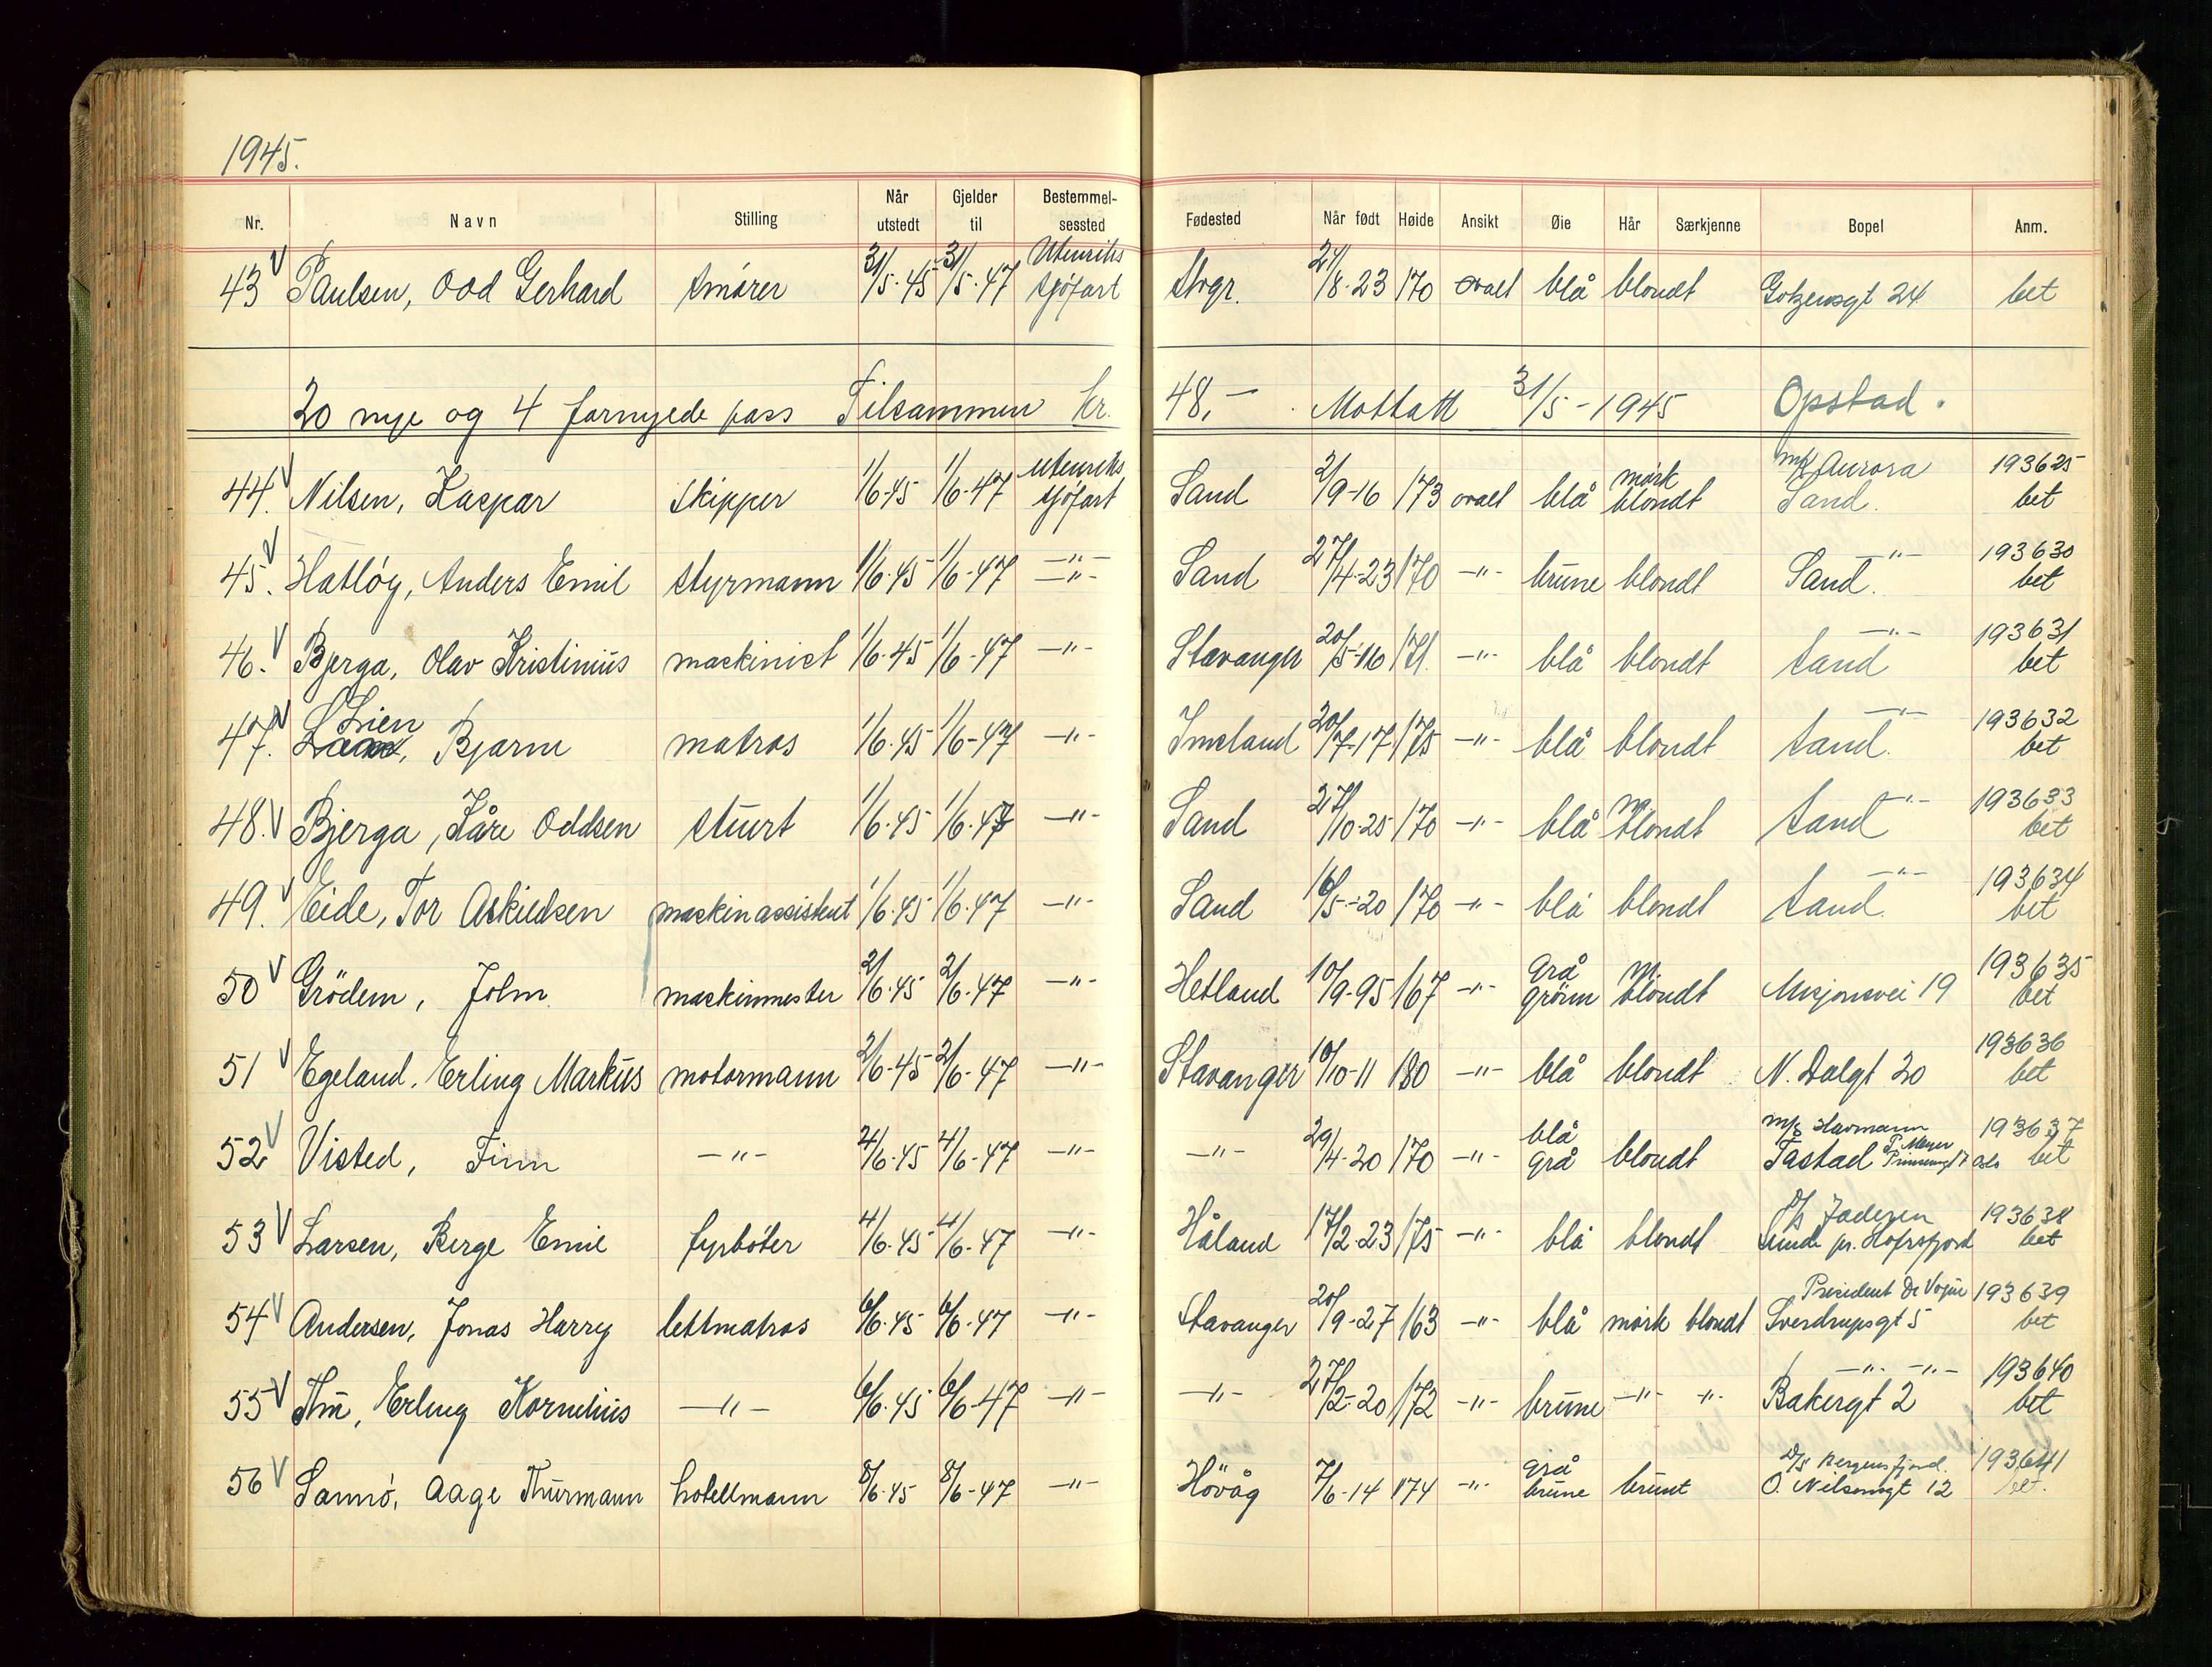 1945.
Nr. Navn Stilling Når utstedt Gjelder til Bestemmelsessted Fødested Når født Høide Ansikt Øie Hår Særkjenne Bopel Anm.
43 V Paulsen, Odd Gerhard smører 31/5-45 31/5-47 Utenriks sjøfart Stvgr. 21/8-23 170 ovalt blå blondt 24 bet
20 nye og 4 fornyede pass Tilsammen kr. 48,- Mottatt 31/5-1945 Opstad.
44. V Nilsen, Kaspar skipper 1/6-45 1/6-47 Utenriks sjøfart Sand 2/9-16 173 ovalt blå mørk blondt m/k Aurora Sand. 193625 bet
45. V Hatløy, Anders Emil styrmann 1/6-45 1/6-47 -"- -"- Sand 27/4-23 170 -"- brune blondt -"- Sand. 193630 bet
46. V Bjerga, Olav Kristinius maskinist 1/6-45 1/6-47 -"- Stavanger 20/5-16 171. -"- blå blondt -"- Sand 193631 bet
47. V Lien, Bjarne matros 1/6-45 1/6-47 -"- Imsland 20/7-17 175 -"- blå blondt -"- Sand. 193632 bet
48. V Bjerga, Kåre Oddsen stuert 1/6-45 1/6-47 -"- Sand 27/10-25 170 -"- blå m. blondt -"- Sand 193633 bet
49. V Eide, Tor Askildsen maskinassistent 1/6-45 1/6-47 -"- Sand 16/5-20 170 -"- blå blondt -"- Sand. 193634 bet
50 V Grödem, John maskinmester 2/6-45 2/6-47 -"- Hetland 10/9-95 167 -"- grå grönn m. blondt Misjonsvei 19 193635 bet
51 V Egeland, Erling Markus motormann 2/6-45 2/6-47 -"- Stavanger 10/10-11 180 -"- blå blondt N. Dalgt 20 193636 bet
52 V Visted, Finn -"- 4/6-45 4/6-47 -"- -"- 29/4-20 170 -"- blå grå blondt m/s Havmann Tastad P. Meyer Prinsensgt 7 Oslo 193637 bet
53 V Larsen, Berge Emil fyrbøter 4/6-45 4/6-47 -"- Håland 17/2-23 175 -"- blå blondt D/s Jaderen Sunde pr. Hafrsfjord 193638 bet
54 V Andersen, Jonas Harry lettmatros 6/6-45 6/6-47 -"- Stavanger 20/9-27 163 -"- blå mørk blondt President De Vogue Sverdrupsgt 5 193639 bet
55 V Erling Kornelius -"- 6/6-45 6/6-47 -"- -"- 27/2-20 172 -"- brune -"- -"- -"- -"- Bakergt 2 193640 bet
56 V Sannö, Aage Thurmann hotellmann 8/6-45 8/6-47 -"- Hövåg 7/6-14 174 -"- grå brune brunt D/s Bergensfjord. O. Nilsensgt 12 193641 bet.